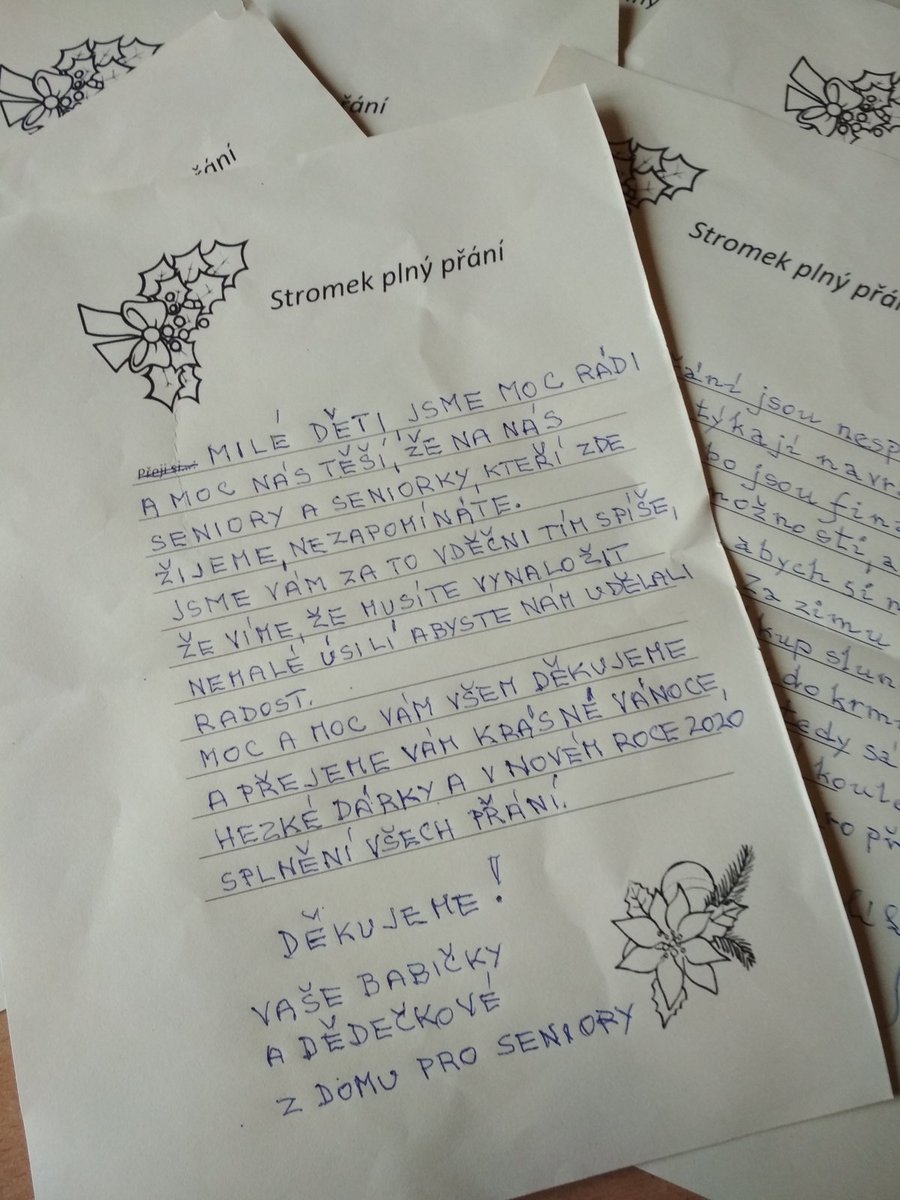 řání
řání
Stromek plný přání
Přeji si
MILÉ DĚTI, JSME MOC RÁDI
A MOC NÁS TĚŠÍ, ŽE NA NÁS
SENIORY A SENIORKY, KTEŘÍ ZDE
ŽIJEME, NEZAPOMÍNÁTE.
JSME VÁM ZA TO VDĚČNI TÍM SPÍŠE,
ŽE VÍME, ŽE MUSÍTE VYNALOŽIT
NEMALÉ ÚSILÍ ABYSTE NÁM UDĚLALI
RADOST.
MOC A MOC VÁM VŠEM DĚKUJEME
A PŘEJEME VÁM KRÁSNÉ VÁNOCE,
HEZKÉ DÁRKY A V NOVÉM ROCE 2020
SPLNĚNÍ VŠECH PŘÁNÍ.
DĚKUJEME!
VAŠE BABIČKY
A DĚDEČKOVÉ
Z DOMU PRO SENIORY
Stromek plný přá
ání jsou nesp
týkají navr
jsou fina
nosti, a
abych si n
za zimu
kup slun
do krm
tedy sá
koule
ro př